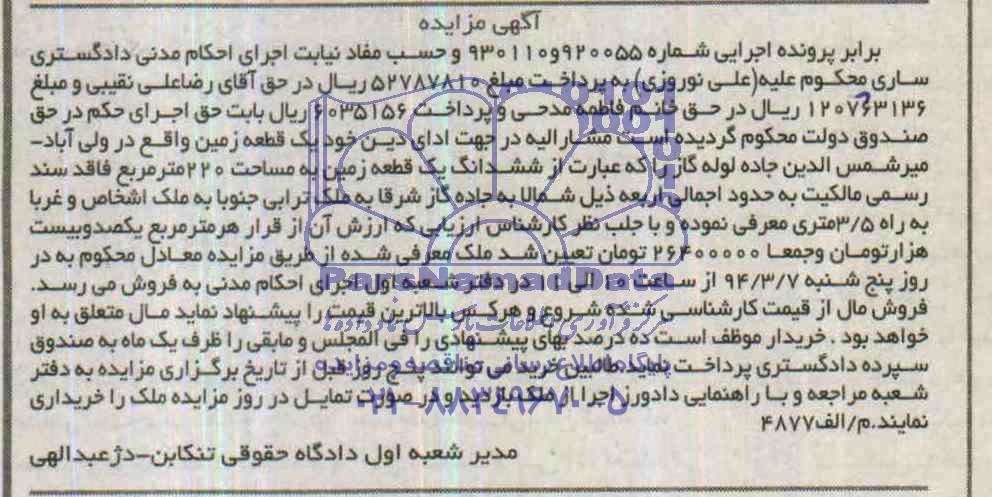 آگهی مزایده
برابر پرونده اجرایی شماره ۹۲۰۰۵۵و۹۳۰۱۱۰ و حسب مفاد نیابت اجرای احکام مدنی دادگستری
ساری محکوم علیه(علی نوروزی) به پرداخت مبلغ ۵۲۷۸۷۸۱۰ ریال در حق آقای رضاعلی نقیبی و مبلغ
۱۲۰۷۶۳۱۳۶ ریال در حق خانم فاطمه مدحی و پرداخت ۶۰۳۵۱۵۶ ریال بابت حق اجرای حکم در حق
صندوق دولت محکوم گردیده است مشارالیه در جهت ادای دین خود یک قطعه زمین واقع در ولی آباد-
میرشمس الدین جاده لوله گاز را که عبارت از ششدانگ یک قطعه زمین به مساحت ۲۲۰مترمربع فاقد سند
رسمی مالکیت به حدود اجمالی اربعه ذیل شمالا به جاده گاز شرقا به ملک ترابی جنوبا به ملک اشخاص و غربا
به راه ۳/۵متری معرفی نموده و با جلب نظر کارشناس ارزیابی که ارزش آن از قرار هرمترمربع یکصدوبیست
هزارتومان وجمعا ۲۶۴۰۰۰۰۰ تومان تعیین شد ملک معرفی شده از طریق مزایده معادل محکوم به در
روز پنج شنبه ۹۴/۳/۷ از ساعت ۱۰ الی ۱۱ در دفتر شعبه اول اجرای احکام مدنی به فروش می رسد.
فروش مال از قیمت کارشناسی شده شروع و هرکس بالاترین قیمت را پیشنهاد نماید مال متعلق به او
خواهد بود . خریدار موظف است ده درصد بهای پیشنهادی را فی المجلس و مابقی را ظرف یک ماه به صندوق
سپرده دادگستری پرداخت نماید. طالبین خرید می توانند پنج روز قبل از تاریخ برگزاری مزایده به دفتر
شعبه مراجعه و با راهنمایی دادورز اجرا از ملک بازدید و در صورت تمایل در روز مزایده ملک را خریداری
نمایند.م/الف۴۸۷۷
مدیر شعبه اول دادگاه حقوقی تنکابن-دژعبدالهی
ParsNamadData
پایگاه اطلاع رسانی مناقصه و مزایده
۰۲۱-۸۸۳۴۹۶۷۰-۵